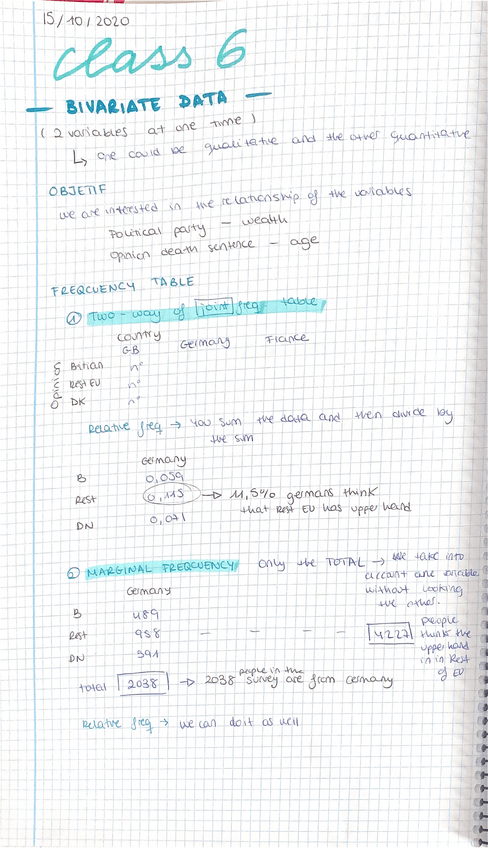 15/10/2020
Class 6
— BIVARIATE DATA —
( 2 variables at one time )
↳ one could be qualitative and the other quantitative
OBJETIF
we are intersted in the relationship of the variables
Political party — wealth
Opinion death sentence — age
FREQCUENCY TABLE
① Two-way of joint freq table
Country
GB Germany France
Britian nº
Rest EU nº
DK nº
Relative freq → You sum the data and then divide by
the sum
Germany
B 0,059
Rest 0,115 → 11,5% germans think
that Rest EU has upper hand
DN 0,071
② MARGINAL FREQCUENCY Only the TOTAL → We take into
account one variable
without looking
the other.
Germany
B 489
Rest 958 — — — — 4227 people
think the
upper hand
in in Rest
of EU
DN 591
total 2038 → 2038 people in the survey are from Germany
Relative freq → we can do it as well